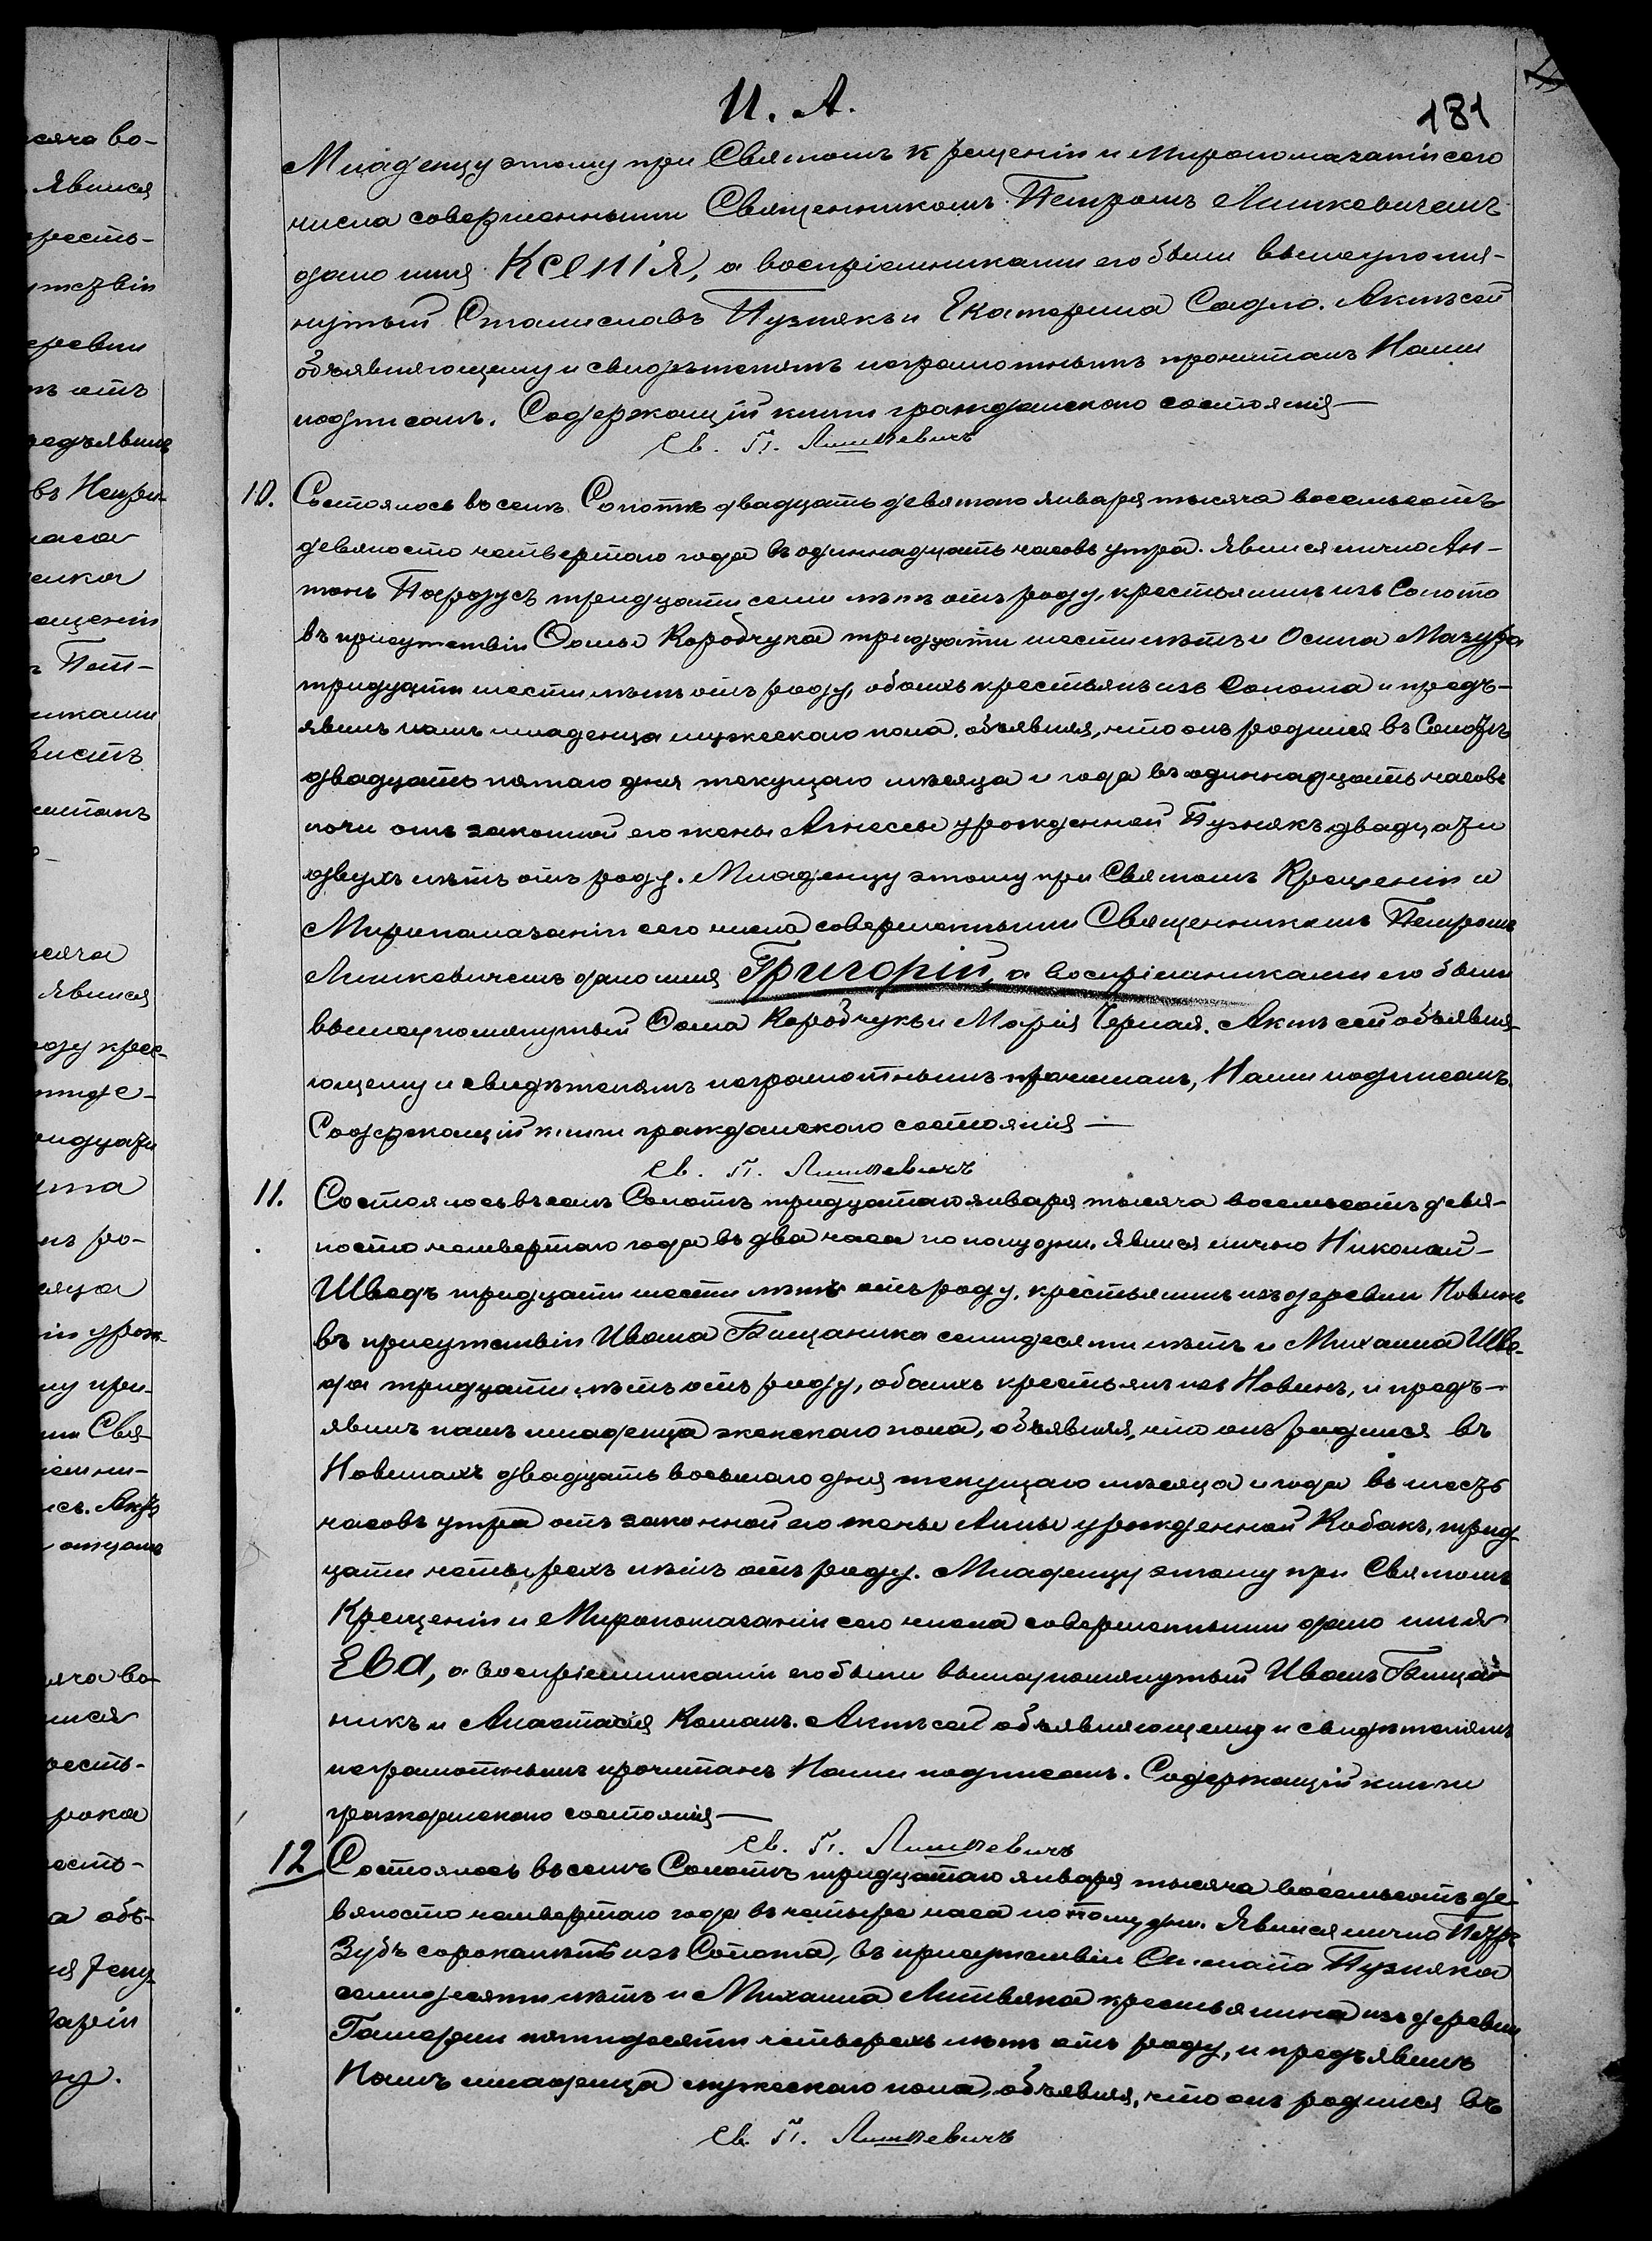 И. А.
181
Младенцу этому при Святомъ Крещеніи и Миропомазаніи сего
числа совершенными Священникомъ Петромъ Лишкевичемъ
дано имя Ксенія, а воспріемниками его были вышеупомя-
нутый Станиславъ Пузнякъ и Екатерина Садло. Актъ сей
объявляющему и свидѣтелямъ неграмотнымъ прочитанъ Нами
подписанъ. Содержащій книги гражданскаго состоянія —
Св. П. Лишкевичъ
10. Состоялось въ селѣ Сопотѣ двадцать девятаго января тысяча восемьсотъ
девяносто четвертаго года въ одиннадцать часовъ утра. Явился лично Ан-
тонъ Пародусъ тридцати семи лѣтъ отъ роду, крестьянинъ изъ Сопота
въ присутствіи Ѳомы Коробчука тридцати шести лѣтъ и Осипа Мазура
тридцати шести лѣтъ отъ роду, обоихъ крестьянъ изъ Сопота и предъ-
явилъ намъ младенца мужескаго пола, объявляя, что онъ родился въ Сопотѣ
двадцать пятаго дня текущаго мѣсяца и года въ одиннадцать часовъ
ночи отъ законной его жены Агнессы урожденной Пузнякъ двадцати
двухъ лѣтъ отъ роду. Младенцу этому при Святомъ Крещеніи и
Миропомазаніи сего числа совершенными Священникомъ Петромъ
Лишкевичемъ дано имя Григорій, а воспріемниками его были
вышеупомянутый Ѳома Коробчукъ и Марія Черная. Актъ сей объявля-
ющему и свидѣтелямъ неграмотнымъ прочитанъ, Нами подписанъ.
Содержащій книги гражданскаго состоянія —
Св. П. Лишкевичъ
11. Состоялось въ селѣ Сопотѣ тридцатаго января тысяча восемьсотъ девя-
носто четвертаго года въ два часа по полудни. Явился лично Николай
Шведъ тридцати шести лѣтъ отъ роду, крестьянинъ изъ деревни Новинъ
въ присутствіи Ивана Бищаника семидесяти лѣтъ и Михаила Шве-
да тридцати лѣтъ отъ роду, обоихъ крестьянъ изъ Новинъ, и предъ-
явилъ намъ младенца женскаго пола, объявляя, что онъ родился въ
Новинахъ двадцать восьмаго дня текущаго мѣсяца и года въ шесть
часовъ утра отъ законной его жены Анны урожденной Кобакъ, трид-
цати четырехъ лѣтъ отъ роду. Младенцу этому при Святомъ
Крещеніи и Миропомазаніи сего числа совершенными дано имя
Ева, а воспріемниками его были вышеупомянутый Иванъ Бища-
никъ и Анастасія Команъ. Актъ сей объявляющему и свидѣтелямъ
неграмотнымъ прочитанъ Нами подписанъ. Содержащій книги
гражданскаго состоянія —
Св. П. Лишкевичъ
12 Состоялось въ селѣ Сопотѣ тридцатаго января тысяча восемьсотъ де-
вяносто четвертаго года въ четыре часа по полудни. Явился лично Петръ
Зубъ сорока лѣтъ изъ Сопота, въ присутствіи Пузняка
семидесяти лѣтъ и Михаила Литвяка крестьянина изъ деревни
Гамерни пятидесяти четырехъ лѣтъ отъ роду, и предъявилъ
Намъ младенца мужескаго пола, объявляя, что онъ родился въ
Св. П. Лишкевичъ